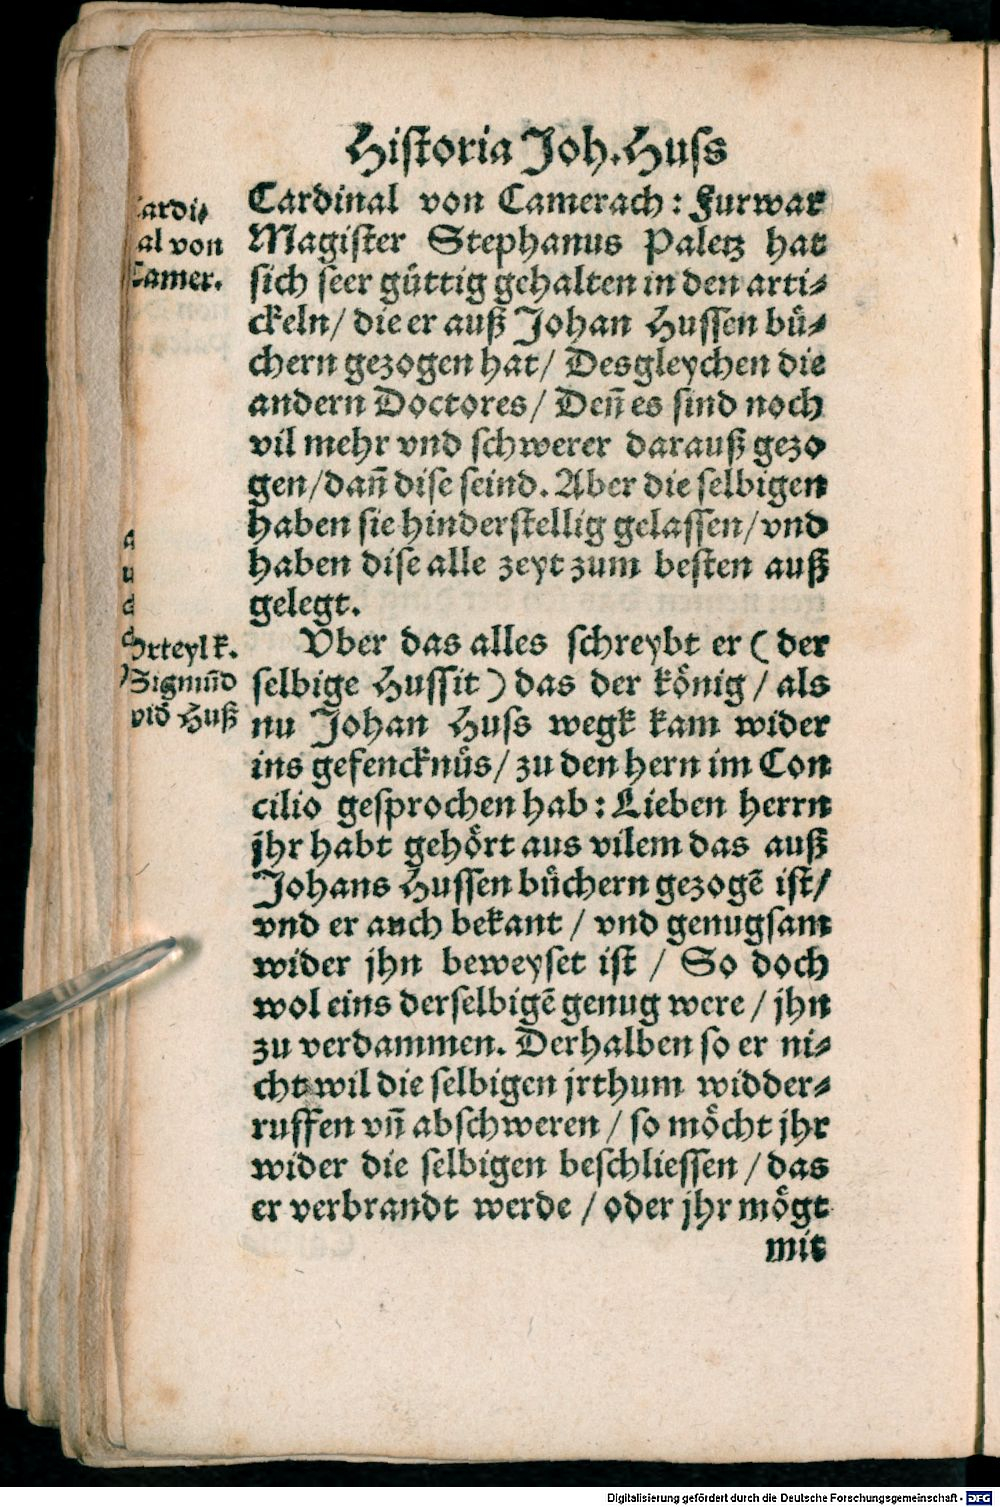 Historia Joh. Huss
Cardinal von Camerach: Furwar
Magister Stephanus Paletz hat
sich seer gůttig gehalten in den arti-
ckeln/ die er auß Johan Hussen bů-
chern gezogen hat/ Desgleychen die
andern Doctores/ Deñ es sind noch
vil mehr vnd schwerer darauß gezo
gen/dañ dise seind. Aber die selbigen
haben sie hinderstellig gelassen/vnd
haben dise alle zeyt zum besten auß
gelegt.
Vber das alles schreybt er ( der
selbige Hussit ) das der kőnig / als
nu Johan Huss wegk kam wider
ins gefencknůs/ zu den hern im Con
cilio gesprochen hab: Lieben herrn
jhr habt gehőrt aus vilem das auß
Johans Hussen bůchern gezogẽ ist/
vnd er auch bekant / vnd genugsam
wider jhn beweyset ist / So doch
wol eins derselbigẽ genug were / jhn
zu verdammen. Derhalben so er ni-
cht wil die selbigen jrthum widder-
ruffen vñ abschweren / so mőcht jhr
wider die selbigen beschliessen / das
er verbrandt werde / oder jhr mőgt
mit
ardi-
al von
Camer.
Orteyl k.
Sigmũd
vid Huß
Digitalisierung gefördert durch die Deutsche Forschungsgemeinschaft - DFG